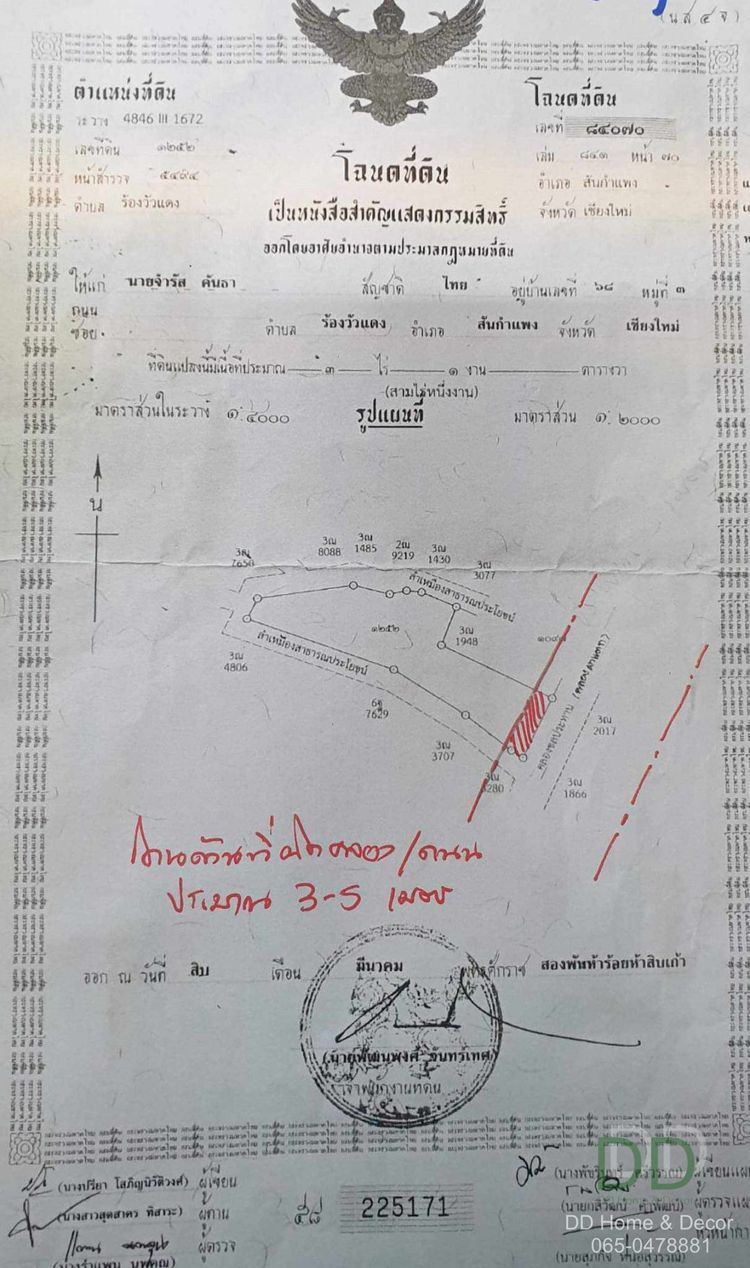 (น ส ๔ จ)
ตำแหน่งที่ดิน
ระวาง 4846 III 1672
เลขที่ดิน ๑๒๕๒
หน้าสำรวจ ๕๔๙๔
ตำบล ร้องวัวแดง
โฉนดที่ดิน
เลขที่ ๘๔๐๗๐
เล่ม ๘๔๑ หน้า ๗๐
อำเภอ สันกำแพง
จังหวัด เชียงใหม่
โฉนดที่ดิน
เป็นหนังสือสำคัญแสดงกรรมสิทธิ์
ออกโดยอาศัยอำนาจตามประมวลกฎหมายที่ดิน
ให้แก่ นายจำรัส คันธา สัญชาติ ไทย อยู่บ้านเลขที่ ๖๘ หมู่ที่ ๓
ถนน
ซอย ตำบล ร้องวัวแดง อำเภอ สันกำแพง จังหวัด เชียงใหม่
ที่ดินแปลงนี้มีเนื้อที่ประมาณ ๓ ไร่ ๑ งาน ตารางวา
(สามไร่หนึ่งงาน)
มาตราส่วนในระวาง ๑:๔๐๐๐ รูปแผนที่ มาตราส่วน ๑:๒๐๐๐
น
3ณ 7650
3ณ 8088
3ณ 1485
2ณ 9219
3ณ 1430
3ณ 3077
ลำเหมืองสาธารณประโยชน์
๑๒๕๒
3ณ 1948
๑๐๙๗
ลำเหมืองสาธารณประโยชน์
3ณ 4806
6ฐ 7629
3ณ 3707
3ณ
คลองชลประทาน
3ณ 2017
3ณ 1866
ประมาณ 3-5 เมตร
ออก ณ วันที่ สิบ เดือน มีนาคม พุทธศักราช สองพันห้าร้อยห้าสิบเก้า
เจ้าพนักงานที่ดิน
(นางปรียา โสภิญนิวัติวงศ์) ผู้เขียน
(นางสาวสุดสาคร ทิสาระ) ผู้ทาน
ผู้ตรวจ
225171
DD
DD Home & Decor
065-0478881